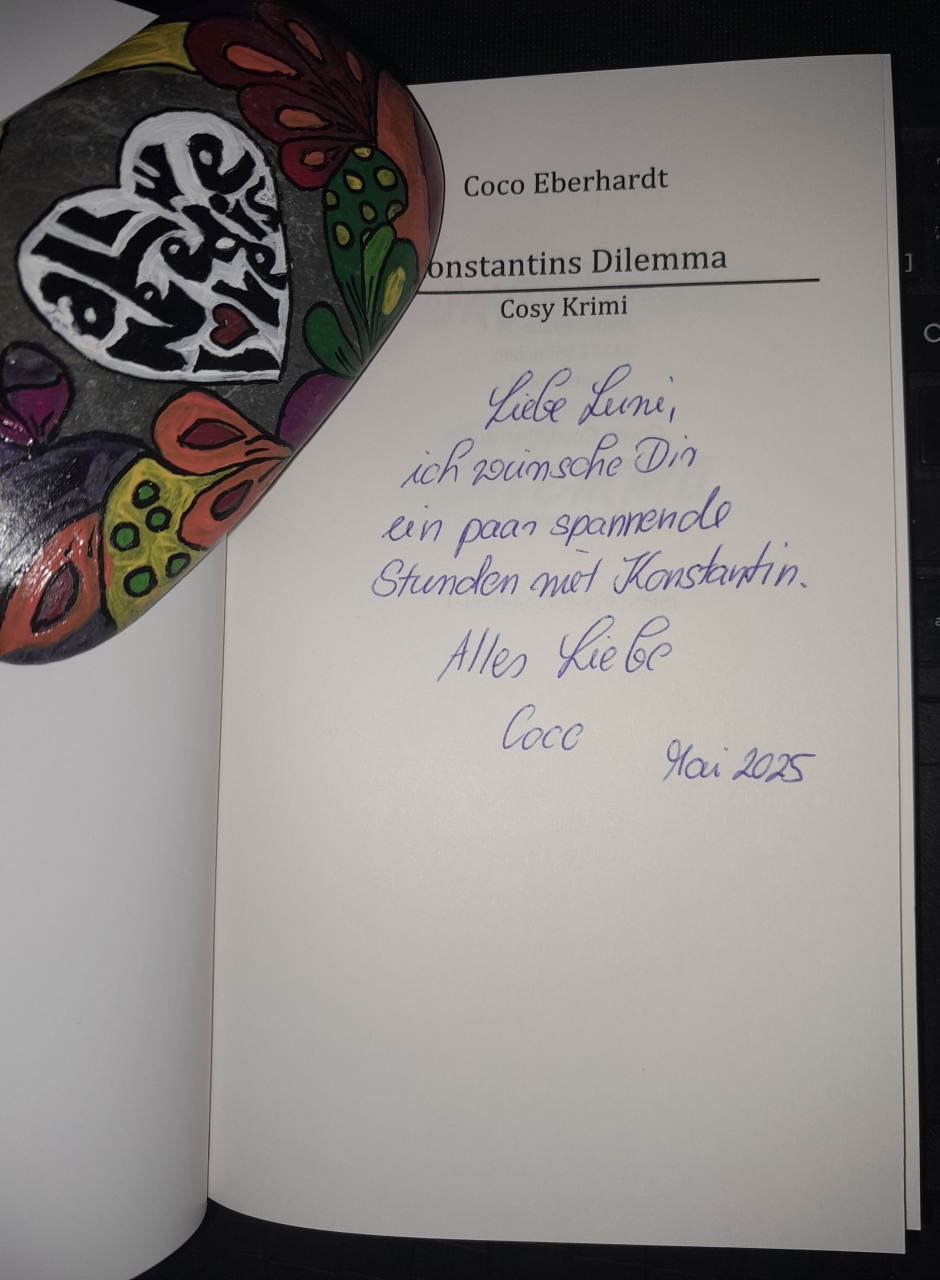 all we
Need is
Love
Coco Eberhardt
onstantins Dilemma
Cosy Krimi
Liebe Luni,
ich wünsche Dir
ein paar spannende
Stunden mit Konstantin.
Alles Liebe
Coco
Mai 2025
]